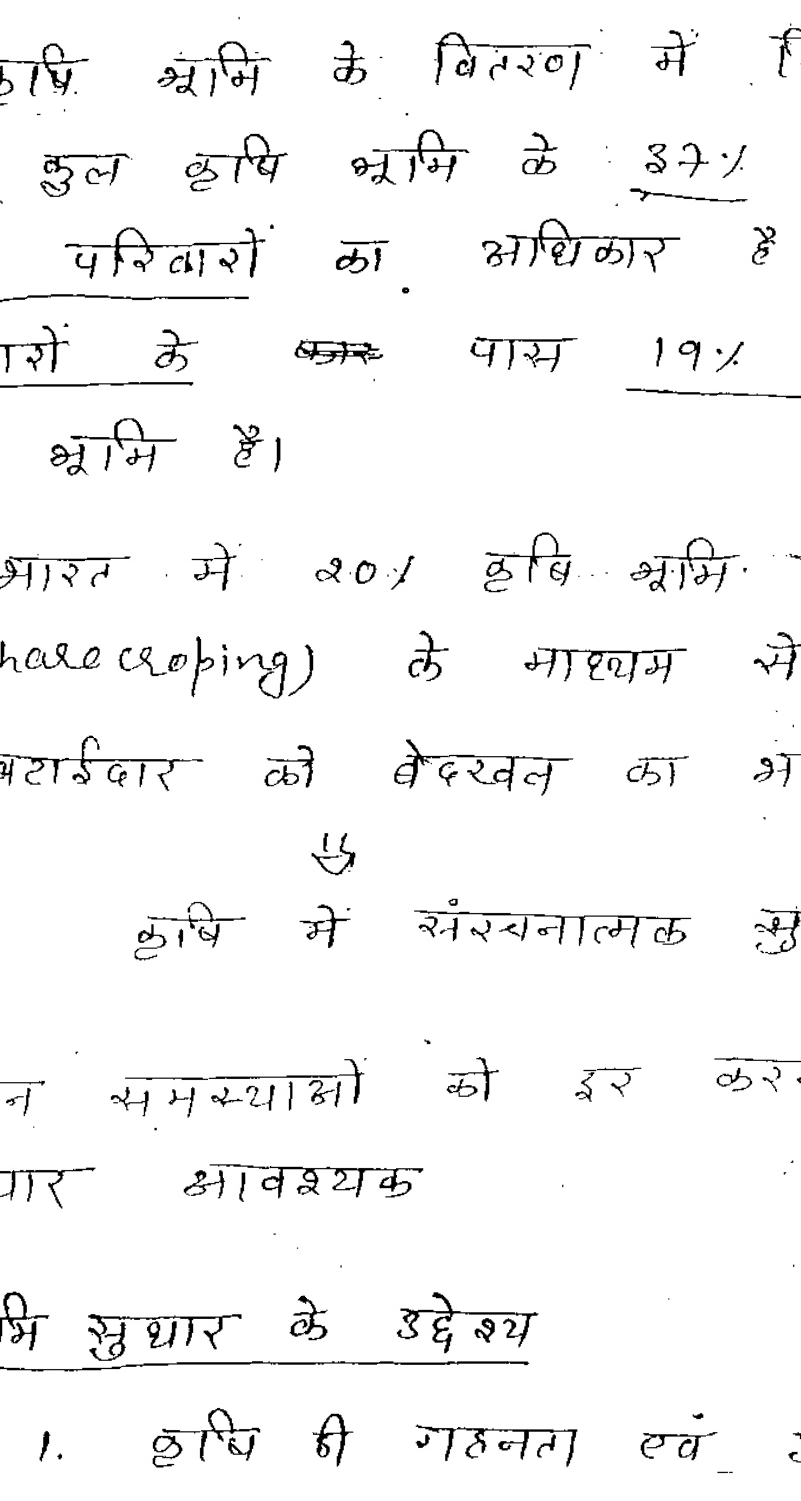 कृषि भूमि के वितरण में
कुल कृषि भूमि के 37%
परिवारों का अधिकार है
के पास 19%
भूमि है।
भारत में 20% कृषि भूमि
harecroping) के माध्यम से
बटाईदार को बेदखल का भ
कृषि में संरचनात्मक सु
न समस्याओं को दूर कर
आवश्यक
मि सुधार के उद्देश्य
1. कृषि की गहनता एवं